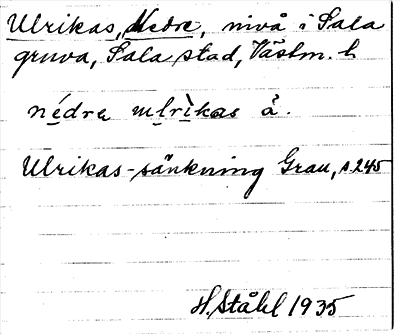 Ulrikas, Nedre, nivå i Sala
gruva, Sala stad, Västm. l.
nédrɐ ulrìkas å.
Ulrikas-sänkning Grau, s. 245
H. Ståhl 1935